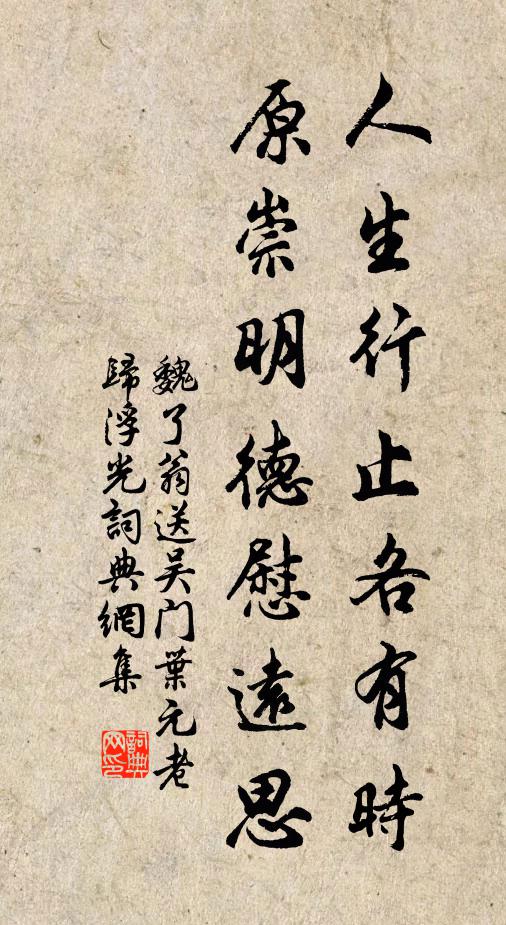 人生行止各有時
原崇明德慰遠思
魏了翁送吴门葉元老
歸浮光詞典網集
詞典
网印